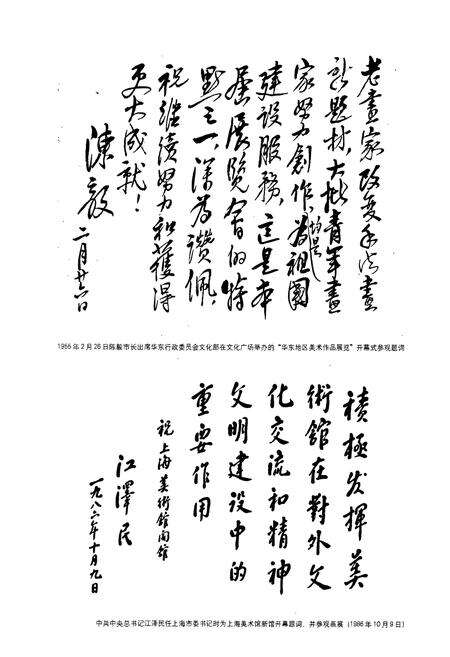 老畫家改变手法畫
新题材，大批青年畫
家努力創作，均是為祖國
建設服務，這是本
屆展覽會的特
點之一，深為讚佩，
祝继续努力和獲得
更大成就！
陳毅
二月廿六日
1955年2月26日陈毅市长出席华东行政委员会文化部在文化广场举办的“华东地区美术作品展览”开幕式参观题词
積極发揮美
術館在對外文
化交流和精神
文明建设中的
重要作用
祝上海美術館開館
江澤民
一九八六年十月九日
中共中央总书记江泽民任上海市委书记时为上海美术馆新馆开幕题词，并参观画展（1986年10月9日）